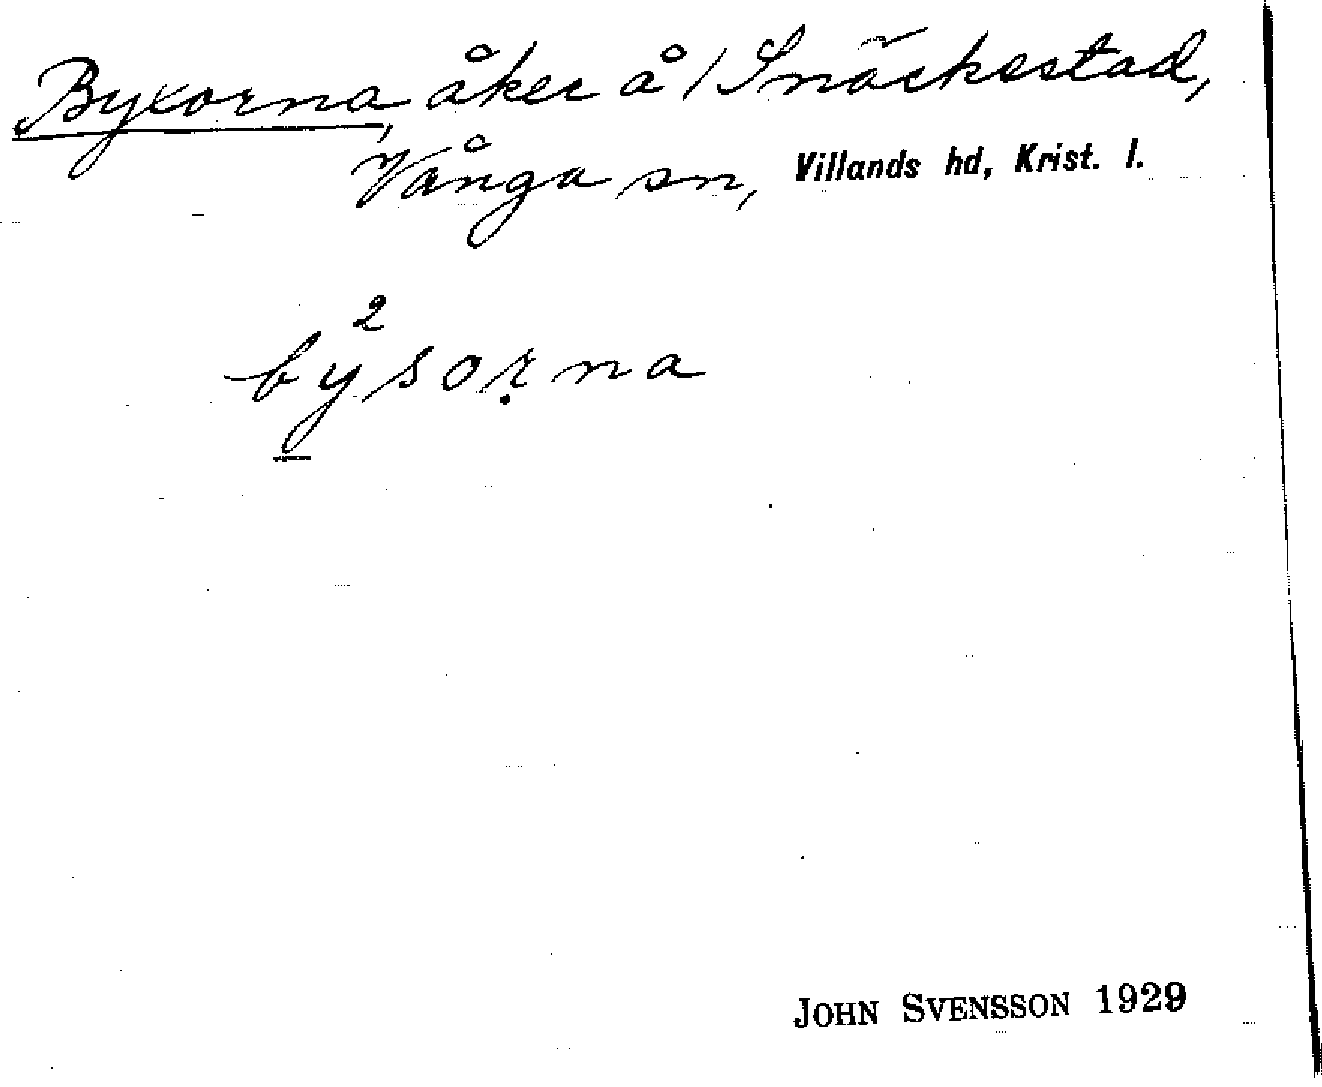 Byxorna, åker å 1 Snäckestad,
Vånga sn, Villands hd, Krist. l.
2
bysorna
JOHN SVENSSON 1929